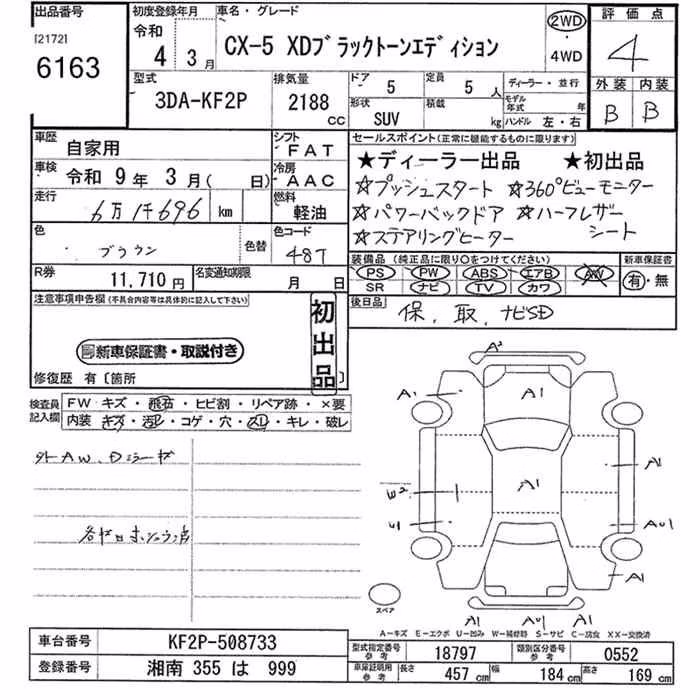 出品番号
[2172]
6163
初度登録年月
令和
4 年 3 月
車名・グレード
CX-5 XDブラックトーンエディション
2WD
・
4WD
評価点
4
外装 内装
B B
型式
3DA-KF2P
排気量
2188 CC
ドア 5
形状 SUV
定員 5 人
積載 kg
ディーラー・並行
モデル年式 年
ハンドル 左・右
車歴
自家用
車検
令和 9 年 3 月 ( 日)
走行
6万1千696 km
色
ブラウン
色替
シフト
FAT
冷房
AAC
燃料
軽油
色コード
48T
R券
11,710 円
名変通知期限
月 日
セールスポイント(正常に機能するものに限ります)
★ディーラー出品 ★初出品
☆プッシュスタート ☆360°ビューモニター
☆パワーバックドア ☆ハーフレザーシート
☆ステアリングヒーター
装備品(純正品に限り○をつけてください)
PS PW ABS エアB AW
SR ナビ TV カワ
新車保証書
有・無
後日品
保、取、ナビSD
注意事項申告欄(不具合内容等は具体的に記入して下さい)
新車保証書・取説付き
初出品
修復歴 有〔箇所 〕
検査員記入欄
FW キズ・飛石・ヒビ割・リペア跡・×要
内装・キズ・汚レ・コゲ・穴・スレ・キレ・破レ
外AW、Dミラーキズ
A2
A1
A1
A1
A1
W2
U1
AU1
A1
A1
AU1
A1
スペア
A-キズ E-エクボ U-凹み W-補修跡 S-サビ C-腐食 XX-交換済
車台番号
KF2P-508733
登録番号
湘南 355 は 999
型式指定番号 参考
18797
類別区分番号 参考
0552
車庫証明用 参考
長さ 457 cm
幅 184 cm
高さ 169 cm